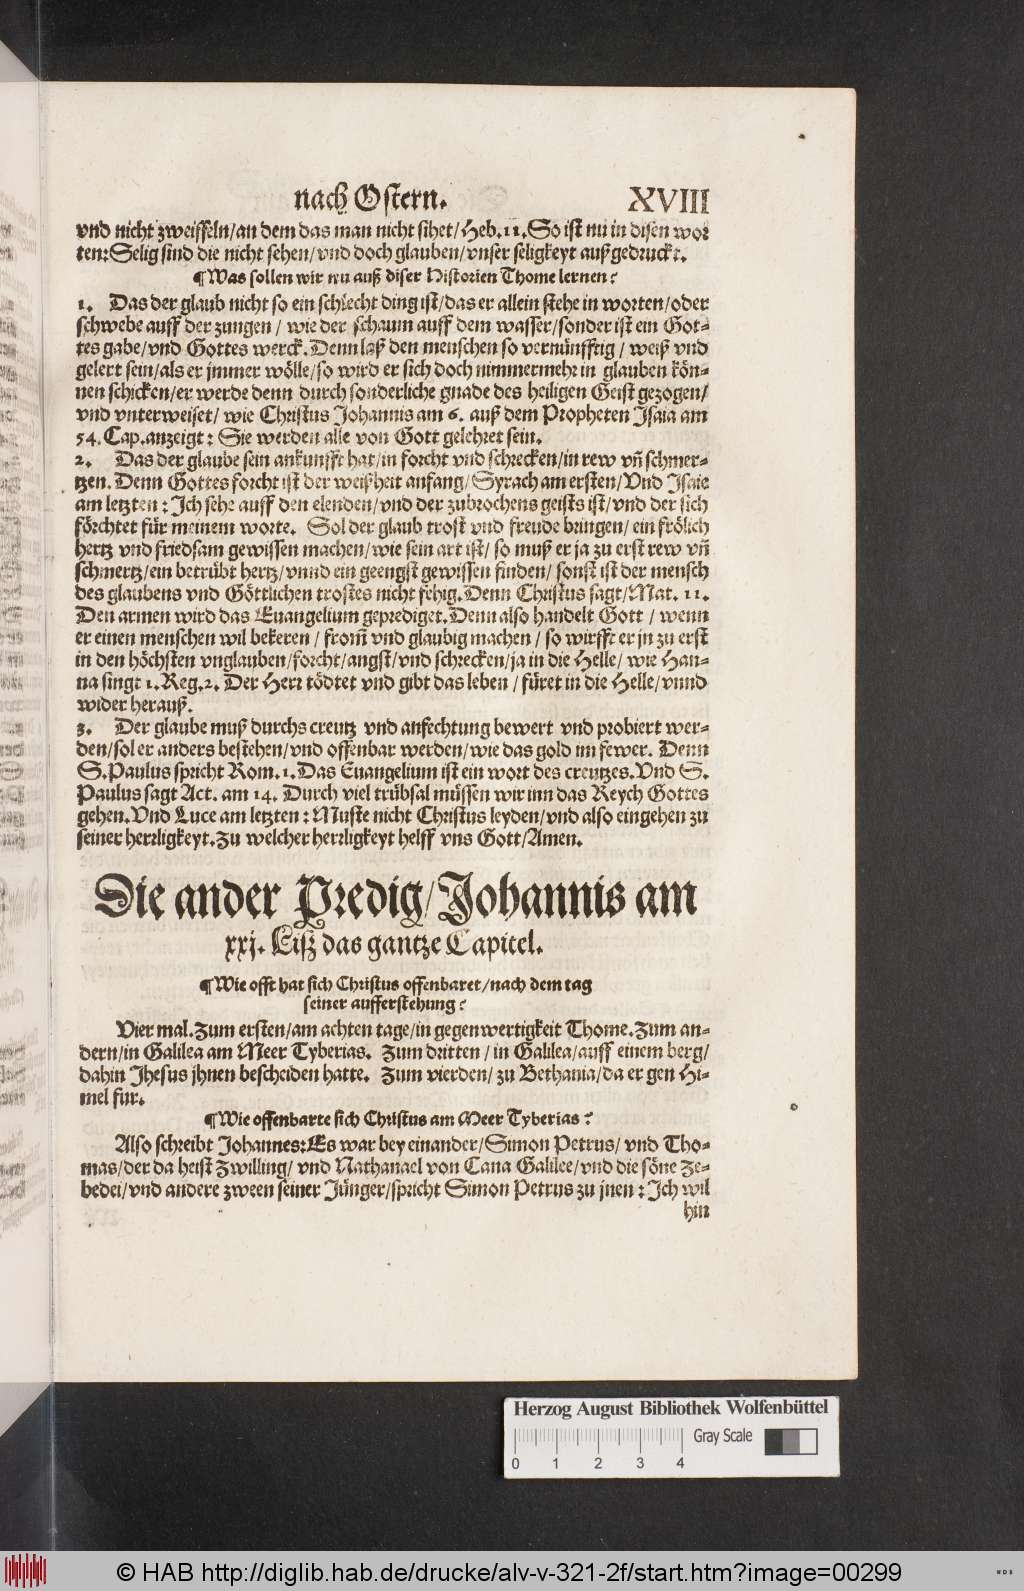 nach Ostern. XVIII
vnd nicht zweiffeln/an dem das man nicht sihet/Heb.11.So ist nu in disen wor
ten:Selig sind die nicht sehen/vnd doch glauben/vnser seligkeyt außgedruckt.
¶Was sollen wir nu auß diser Historien Thome lernen?
1. Das der glaub nicht so ein schlecht ding ist/das er allein stehe in worten/oder
schwebe auff der zungen / wie der schaum auff dem wasser/sonder ist ein Got-
tes gabe/vnd Gottes werck.Denn laß den menschen so vernünfftig / weiß vnd
gelert sein/als er jmmer wölle/so wird er sich doch nimmermehr in glauben kön-
nen schicken/er werde denn durch sonderliche gnade des heiligen Geist gezogen/
vnd vnterweiset/ wie Christus Johannis am 6. auß dem Propheten Isaia am
54.Cap.anzeigt: Sie werden alle von Gott gelehret sein.
2. Das der glaube sein ankunfft hat/in forcht vnd schrecken/in rew vñ schmer-
tzen. Denn Gottes forcht ist der weißheit anfang/Syrach am ersten/Vnd Isaie
am letzten: Ich sehe auff den elenden/vnd der zubrochens geists ist/vnd der sich
förchtet für meinem worte. Sol der glaub trost vnd freude bringen/ ein frölich
hertz vnd friedsam gewissen machen/wie sein art ist/ so muß er ja zu erst rew vñ
schmertz/ein betrübt hertz/vnnd ein geengst gewissen finden/ sonst ist der mensch
des glaubens vnd Göttlichen trostes nicht fehig.Denn Christus sagt/Mat. 11.
Den armen wird das Euangelium geprediget.Denn also handelt Gott / wenn
er einen menschen wil bekeren / from̃ vnd glaubig machen / so wirfft er jn zu erst
in den höchsten vnglauben/forcht/angst/vnd schrecken/ja in die Helle/ wie Han-
na singt 1.Reg.2. Der Herr tödtet vnd gibt das leben / füret in die Helle/vnnd
wider herauß.
3. Der glaube muß durchs creutz vnd anfechtung bewert vnd probiert wer-
den/sol er anders bestehen/vnd offenbar werden/wie das gold im fewer. Denn
S.Paulus spricht Rom.1.Das Euangelium ist ein wort des creutzes.Vnd S.
Paulus sagt Act. am 14. Durch viel trübsal müssen wir inn das Reych Gottes
gehen.Vnd Luce am letzten: Muste nicht Christus leyden/vnd also eingehen zu
seiner herrligkeyt.Zu welcher herrligkeyt helff vns Gott/Amen.
Die ander Predig/Johannis am
xxj. Liß das gantze Capitel.
¶Wie offt hat sich Christus offenbaret/nach dem tag
seiner aufferstehung?
Vier mal.Zum ersten/am achten tage/in gegenwertigkeit Thome.Zum an-
dern/in Galilea am Meer Tyberias. Zum dritten / in Galilea/auff einem berg/
dahin Jhesus jhnen bescheiden hatte. Zum vierden/ zu Bethania/da er gen Hi-
mel fur.
¶Wie offenbarte sich Christus am Meer Tyberias?
Also schreibt Johannes:Es war bey einander/Simon Petrus/ vnd Tho-
mas/der da heist Zwilling/ vnd Nathanael von Cana Galilee/vnd die söne Ze-
bedei/vnd andere zween seiner Jünger/spricht Simon Petrus zu jnen: Ich wil
hin
Herzog August Bibliothek Wolfenbüttel
Gray Scale
0 1 2 3 4
© HAB http://diglib.hab.de/drucke/alv-v-321-2f/start.htm?image=00299